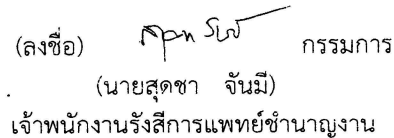 (ลงชื่อ) กรรมการ
(นายสุดชา จันมี)
เจ้าพนักงานรังสีการแพทย์ชำนาญงาน